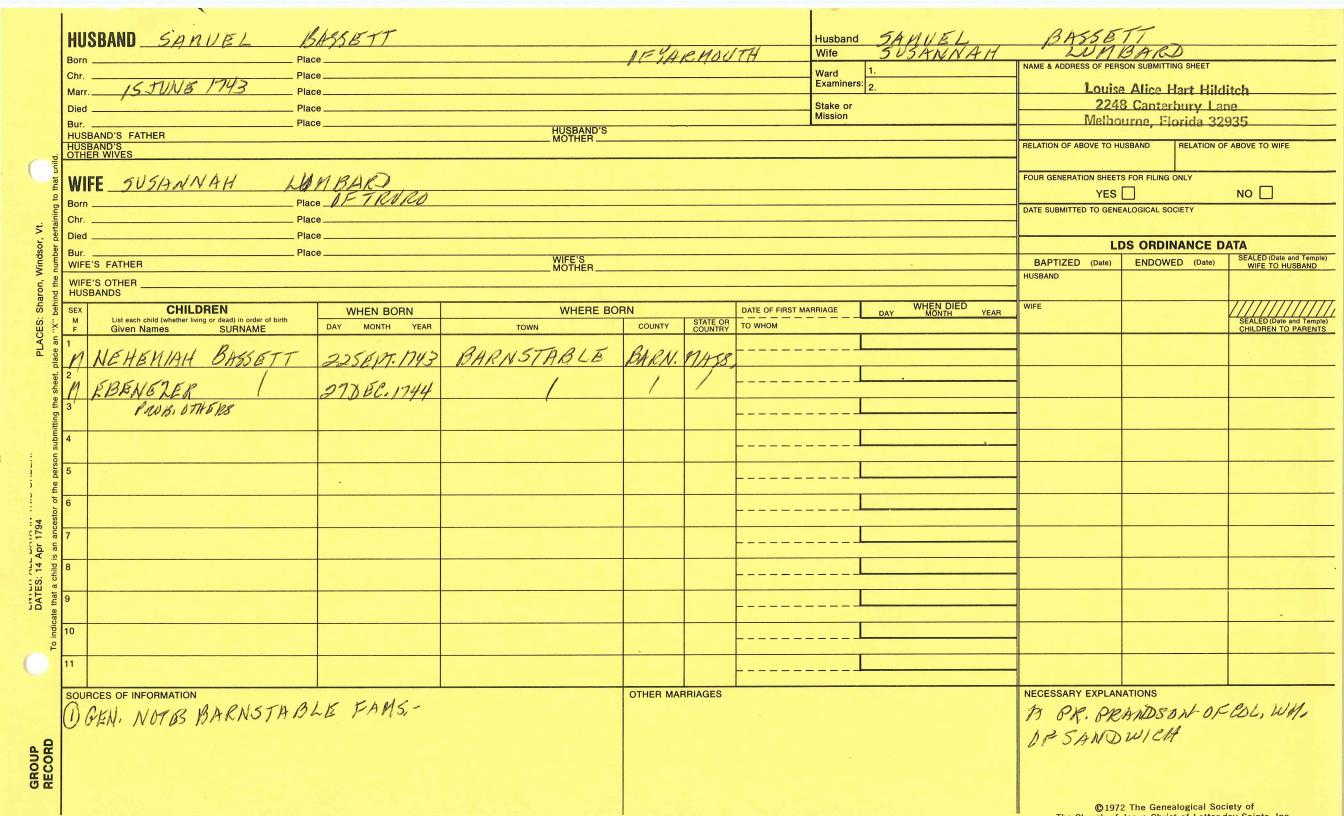 HUSBAND SAMUEL BASSETT
Born Place OF YARMOUTH
Chr. Place
Marr. 15 JUNE 1743 Place
Died Place
Bur. Place
HUSBAND'S FATHER HUSBAND'S MOTHER
HUSBAND'S OTHER WIVES
Husband SAMUEL BASSETT
Wife SUSANNAH LUMBARD
Ward Examiners: 1.
2.
Stake or Mission
NAME & ADDRESS OF PERSON SUBMITTING SHEET
Louise Alice Hart Hilditch
2248 Canterbury Lane
Melbourne, Florida 32935
RELATION OF ABOVE TO HUSBAND RELATION OF ABOVE TO WIFE
FOUR GENERATION SHEETS FOR FILING ONLY
YES NO
DATE SUBMITTED TO GENEALOGICAL SOCIETY
WIFE SUSANNAH LUMBARD
Born Place OF TRURO
Chr. Place
Died Place
Bur. Place
WIFE'S FATHER WIFE'S MOTHER
WIFE'S OTHER HUSBANDS
LDS ORDINANCE DATA
BAPTIZED (Date) ENDOWED (Date) SEALED (Date and Temple) WIFE TO HUSBAND
HUSBAND
WIFE
SEALED (Date and Temple) CHILDREN TO PARENTS
SEX M F
CHILDREN
List each child (whether living or dead) in order of birth
Given Names SURNAME
WHEN BORN
DAY MONTH YEAR
WHERE BORN
TOWN COUNTY STATE OR COUNTRY
DATE OF FIRST MARRIAGE
TO WHOM
WHEN DIED
DAY MONTH YEAR
1 M NEHEMIAH BASSETT 22 SEPT. 1743 BARNSTABLE BARN. MASS.
2 M EBENEZER / 27 DEC. 1744 / / /
3 PROB. OTHERS
4
5
6
7
8
9
10
11
SOURCES OF INFORMATION
① GEN. NOTES BARNSTABLE FAMS.-
OTHER MARRIAGES
NECESSARY EXPLANATIONS
PR. PRANDSON OF COL. WM.
OF SANDWICH
©1972 The Genealogical Society of
PLACES: Sharon, Windsor, Vt.
DATES: 14 Apr 1794
To indicate that a child is an ancestor of the person submitting the sheet, place an "X" behind the number pertaining to that child.
GROUP
RECORD